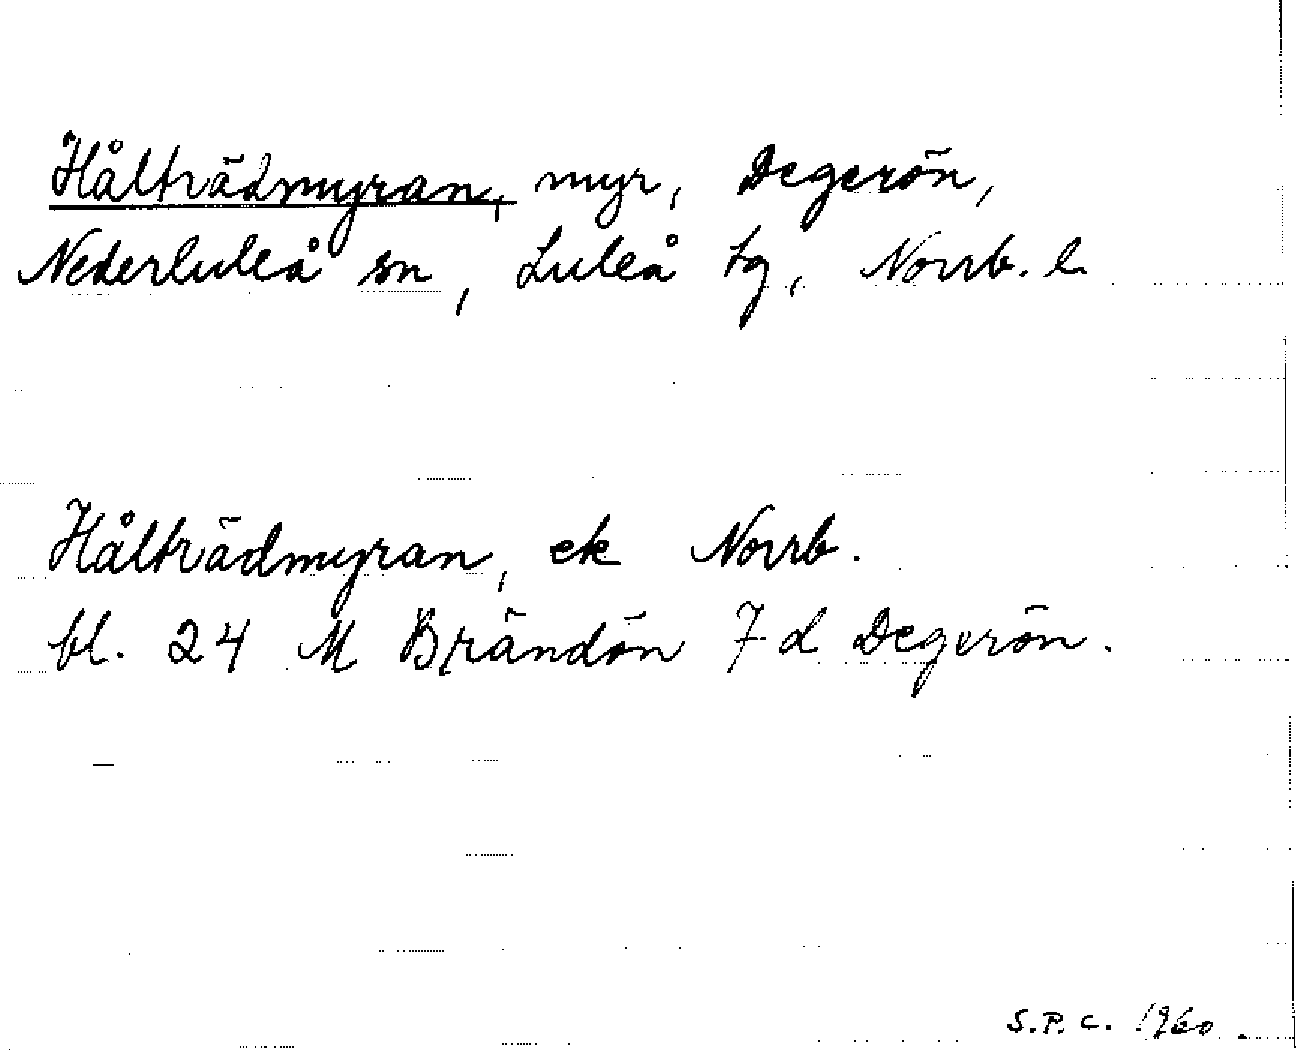 Hålträdmyran, myr, Degerön,
Nederluleå sn, Luleå tg, Norrb. l.
Hålträdmyran, ek Norrb.
bl. 24 M Brändön 7 d Degerön.
S.P.C. 1960.